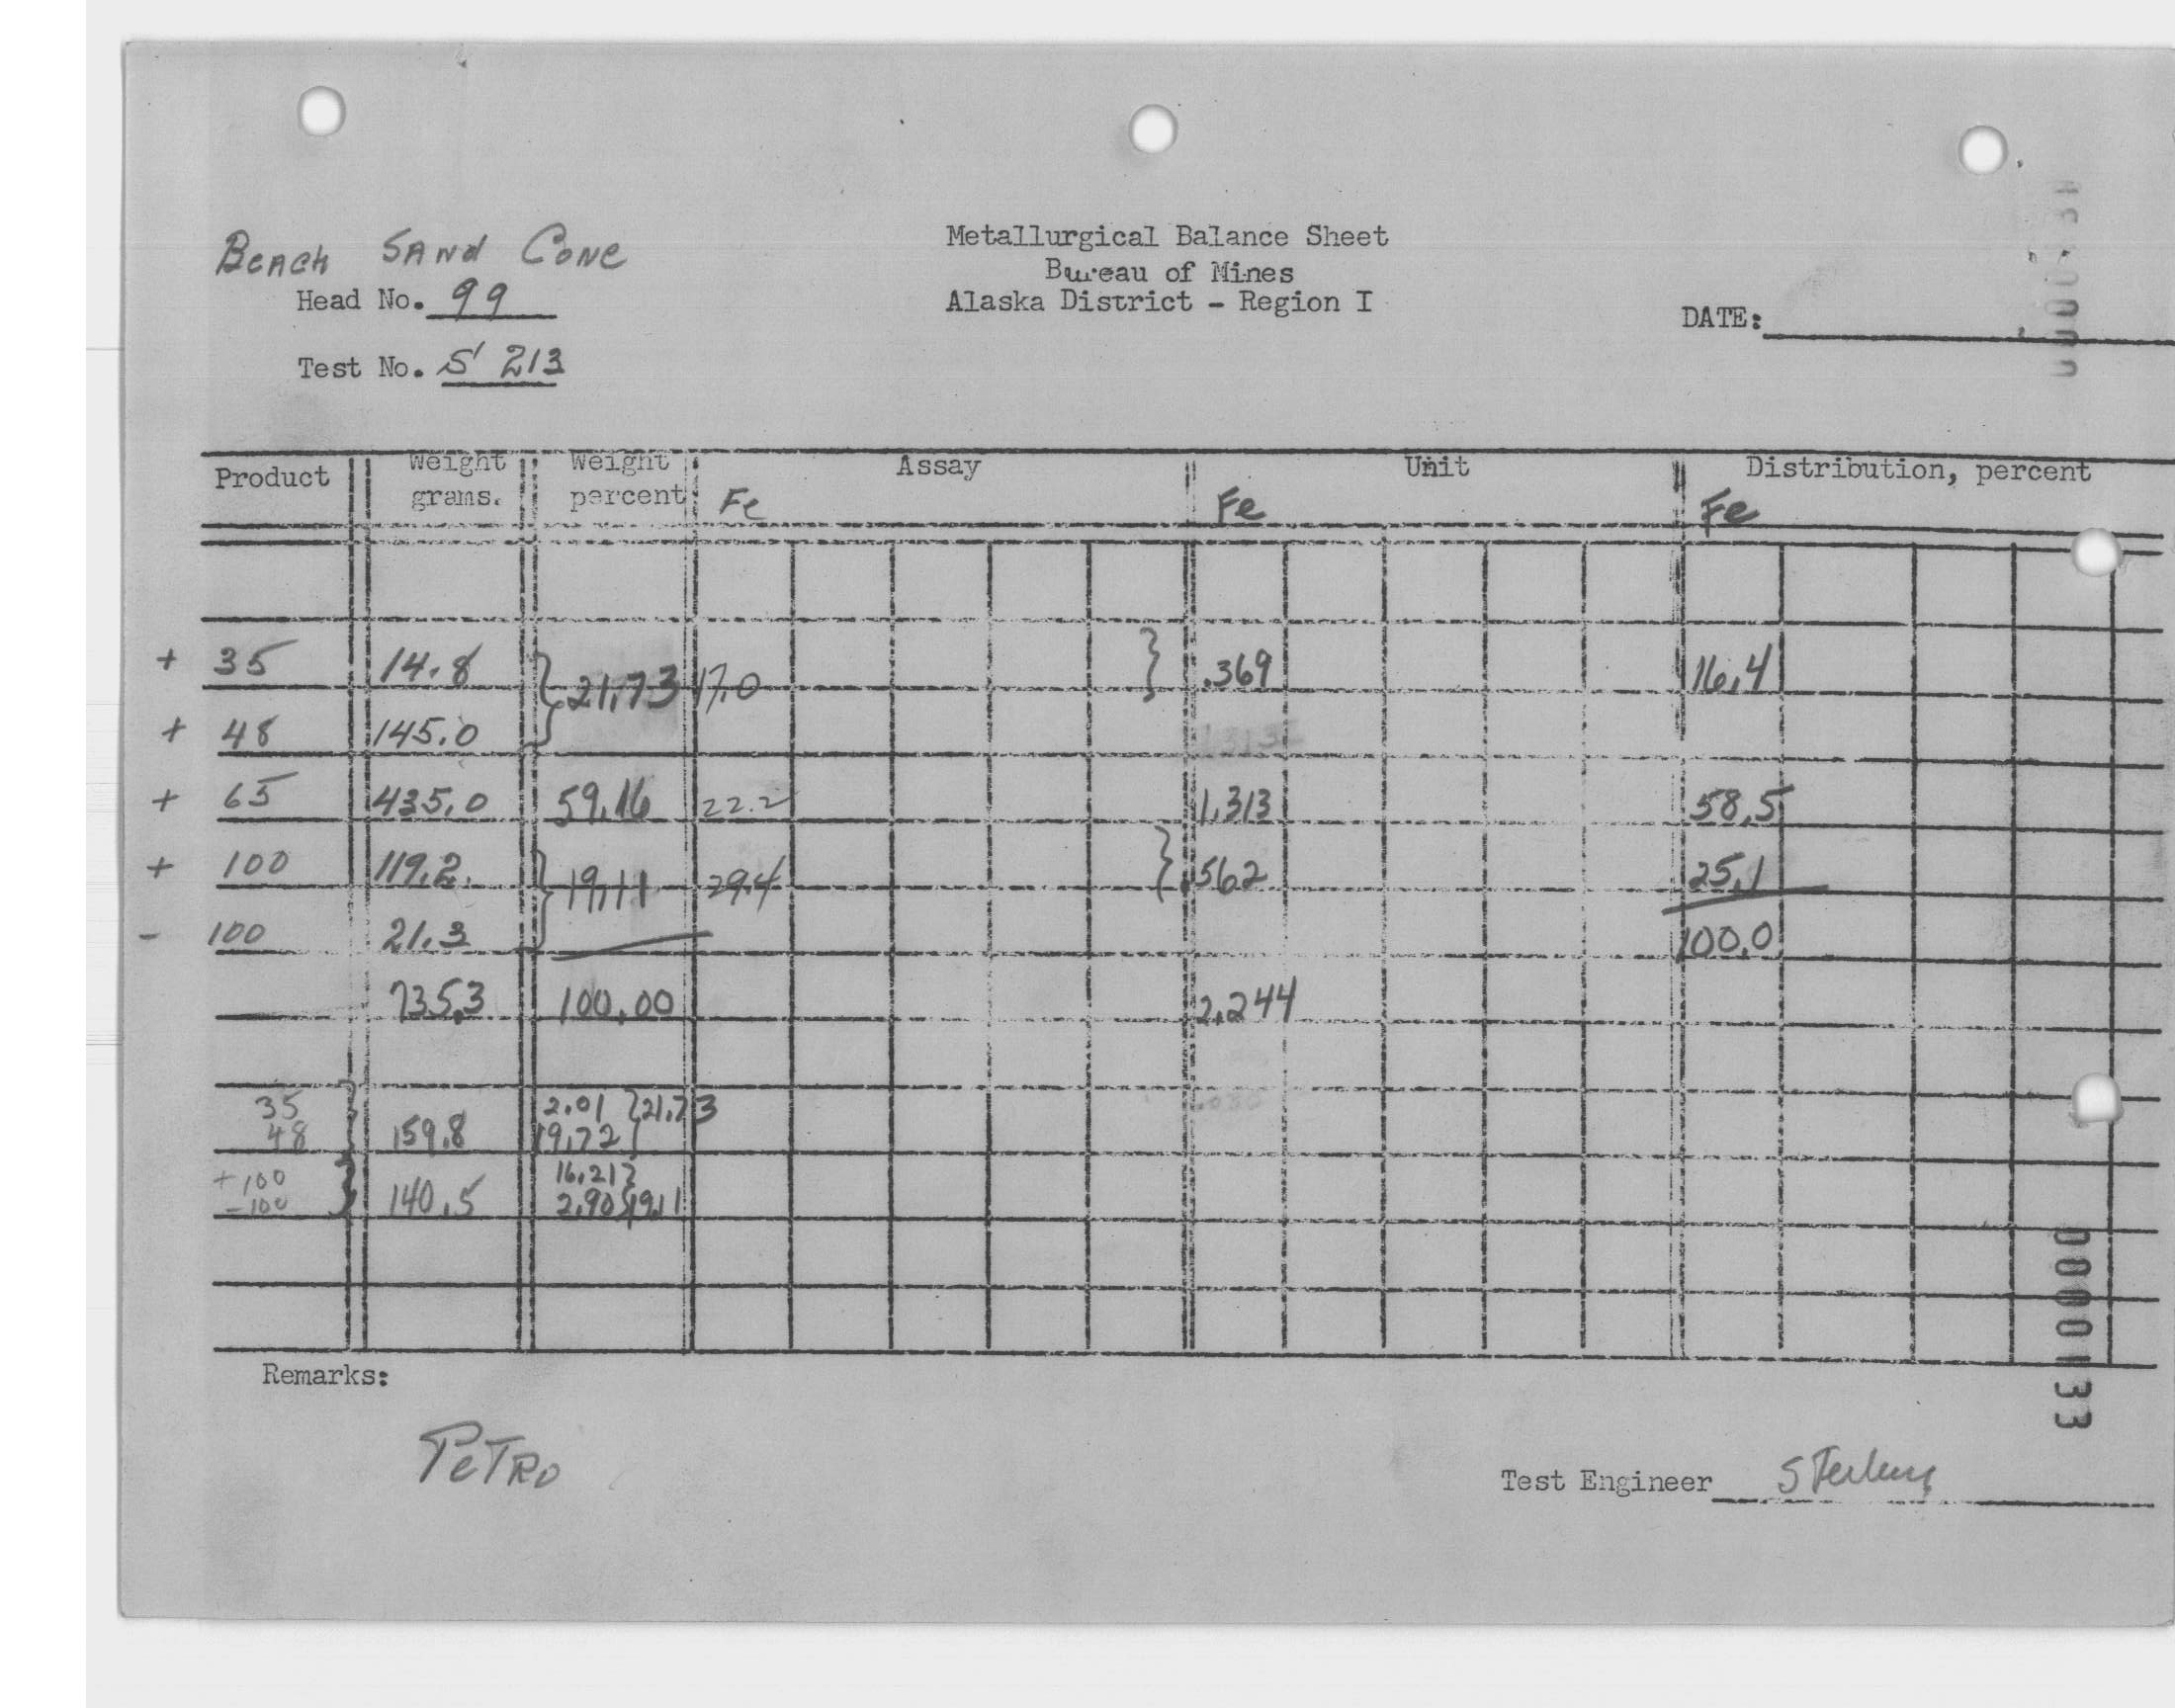 BEACH SAND CONC
Head No. 99
Test No. S 213
Metallurgical Balance Sheet
Bureau of Mines
Alaska District - Region I
DATE:
Product Weight grams. Weight percent Assay Unit Distribution, percent
Fe Fe Fe
+ 35 14.8 } 21.73 17.0 } .369 16.4
+ 48 145.0
+ 65 435.0 59.16 22.2 1.313 58.5
+ 100 119.2 } 19.11 29.4 } .562 25.1
- 100 21.3 100.0
735.3 100.00 2.244
35 } 2.01 } 21.73
48 159.8 19.72
+100 } 16.21 }
-100 140.5 2.90 19.11
Remarks:
PETRO
Test Engineer Sterling
0000133